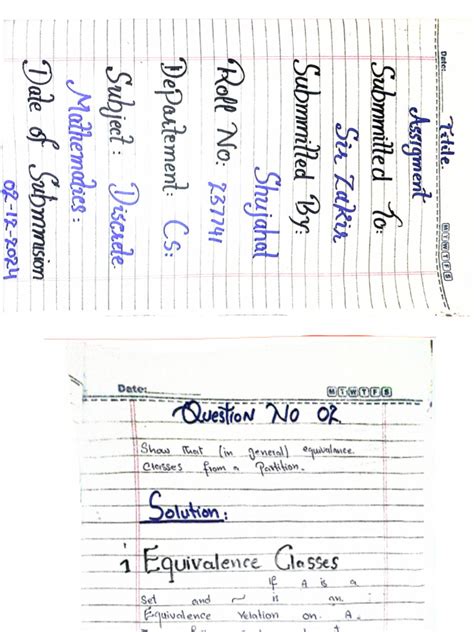 Date:
M T W T F S
Tittle.
Assigment
Submmitted To:
Sir Zakir
Submmitted By:
Shujahat
Roll No: 237741
Departement: CS:
Subject: Discrete
Mathematics:
Date of Submmision
02-12-2024
Date:
M T W T F S
QUESTION NO 02
Show that (in general) equivalence
Classes from a Partition.
Solution:
1 Equivalence Classes
If A is a
set and ~ is an
Equivalence relation on A.